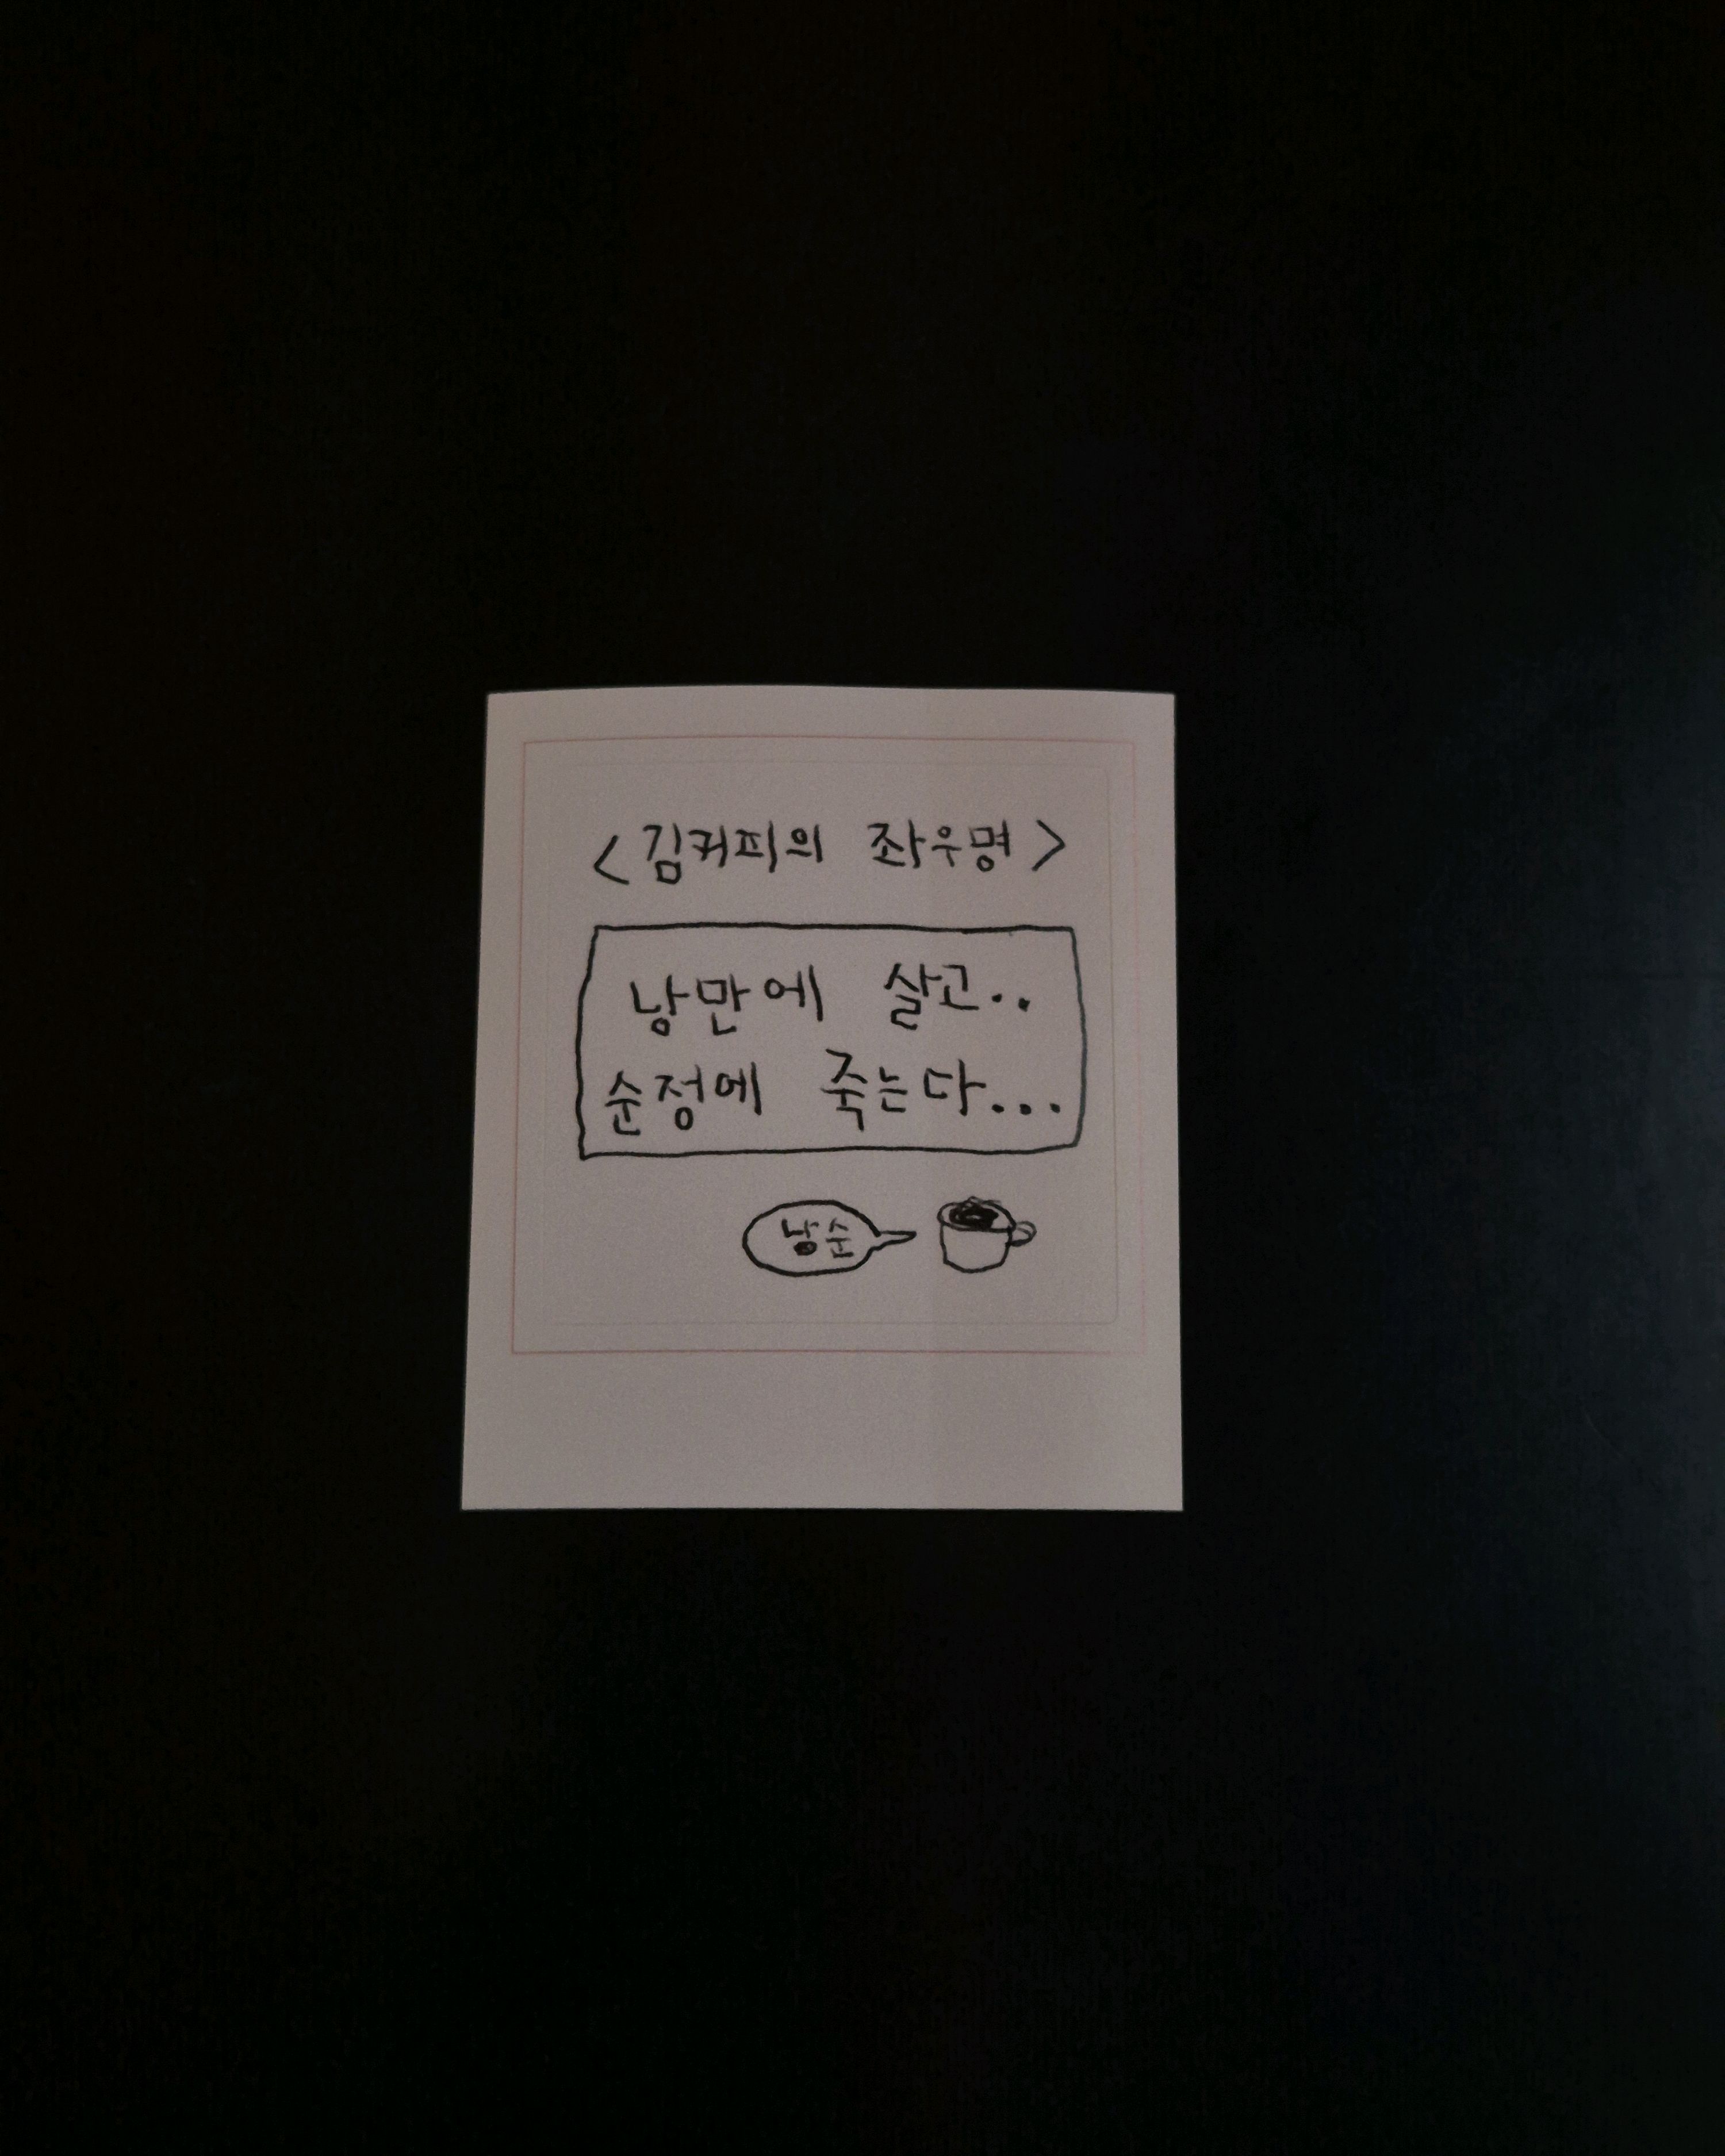 <김커피의 좌우명>
낭만에 살고..
순정에 죽는다...
낭순